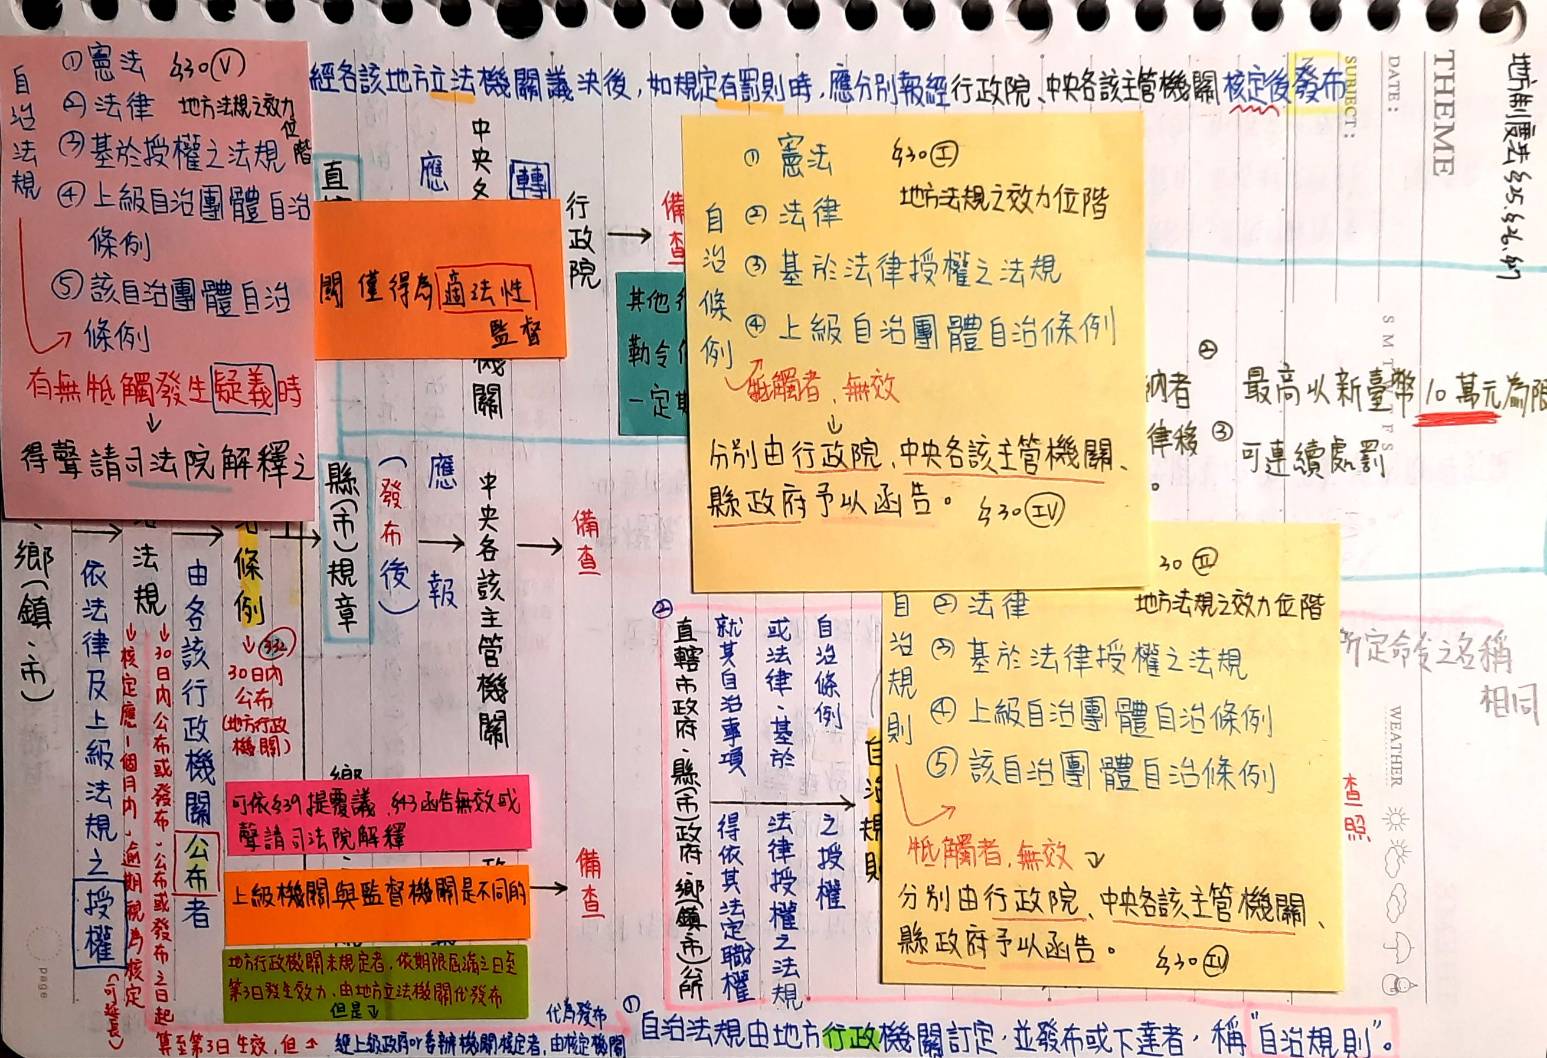 經各該地方立法機關議決後，如規定有罰則時，應分別報經行政院、中央各該主管機關核定後發布
自治法規
①憲法 §30(Ⅴ)
②法律 地方法規之效力位階
③基於授權之法規
④上級自治團體自治
條例
⑤該自治團體自治
條例
有無牴觸發生疑義時
↓
得聲請司法院解釋之
關僅得為適法性
監督
應
轉
行政院
→
備查
直
其他
勒令
自治條例
①憲法 §30(Ⅰ)
②法律 地方法規之效力位階
③基於法律授權之法規
④上級自治團體自治條例
牴觸者、無效
↓
分別由行政院、中央各該主管機關、
縣政府予以函告。 §30(Ⅳ)
THEME
DATE:
SUBJECT:
S M T
納者
律移
② 最高以新臺幣10萬元為限
③ 可連續處罰
。
鄉(鎮、市)
依法律及上級法規之授權
→
法規
↓核定應一個月內，逾期視為核定
(可延長)
↓30日內公布或發布，公布或發布之日起
算至第3日生效，但
由各該行政機關公布者
條例
↓§32
30日內
公布
(地方行政
機關)
縣(市)規章
(發布後)
應報
中央各該主管機關
→
備查
可依§39提覆議、§43函告無效或
聲請司法院解釋
上級機關與監督機關是不同的
→
備查
地方行政機關未規定者，依期限屆滿之日至
第3日發生效力，由地方立法機關代發布
但是↓
經上級政府or委辦機關核定者，由核定機關
代為發布
②
直轄市政府、縣(市)政府、鄉(鎮、市)公所
就其自治事項
得依其法定職權
或法律、基於
法律授權之法規
自治條例
之授權
→
自治規則
30(Ⅱ)
②法律 地方法規之效力位階
③基於法律授權之法規
④上級自治團體自治條例
⑤該自治團體自治條例
牴觸者、無效↓
分別由行政院、中央各該主管機關、
縣政府予以函告。 §30(Ⅳ)
所定命令之名稱
相同
WEATHER
查照
page
①自治法規由地方行政機關訂定，並發布或下達者，稱"自治規則"。